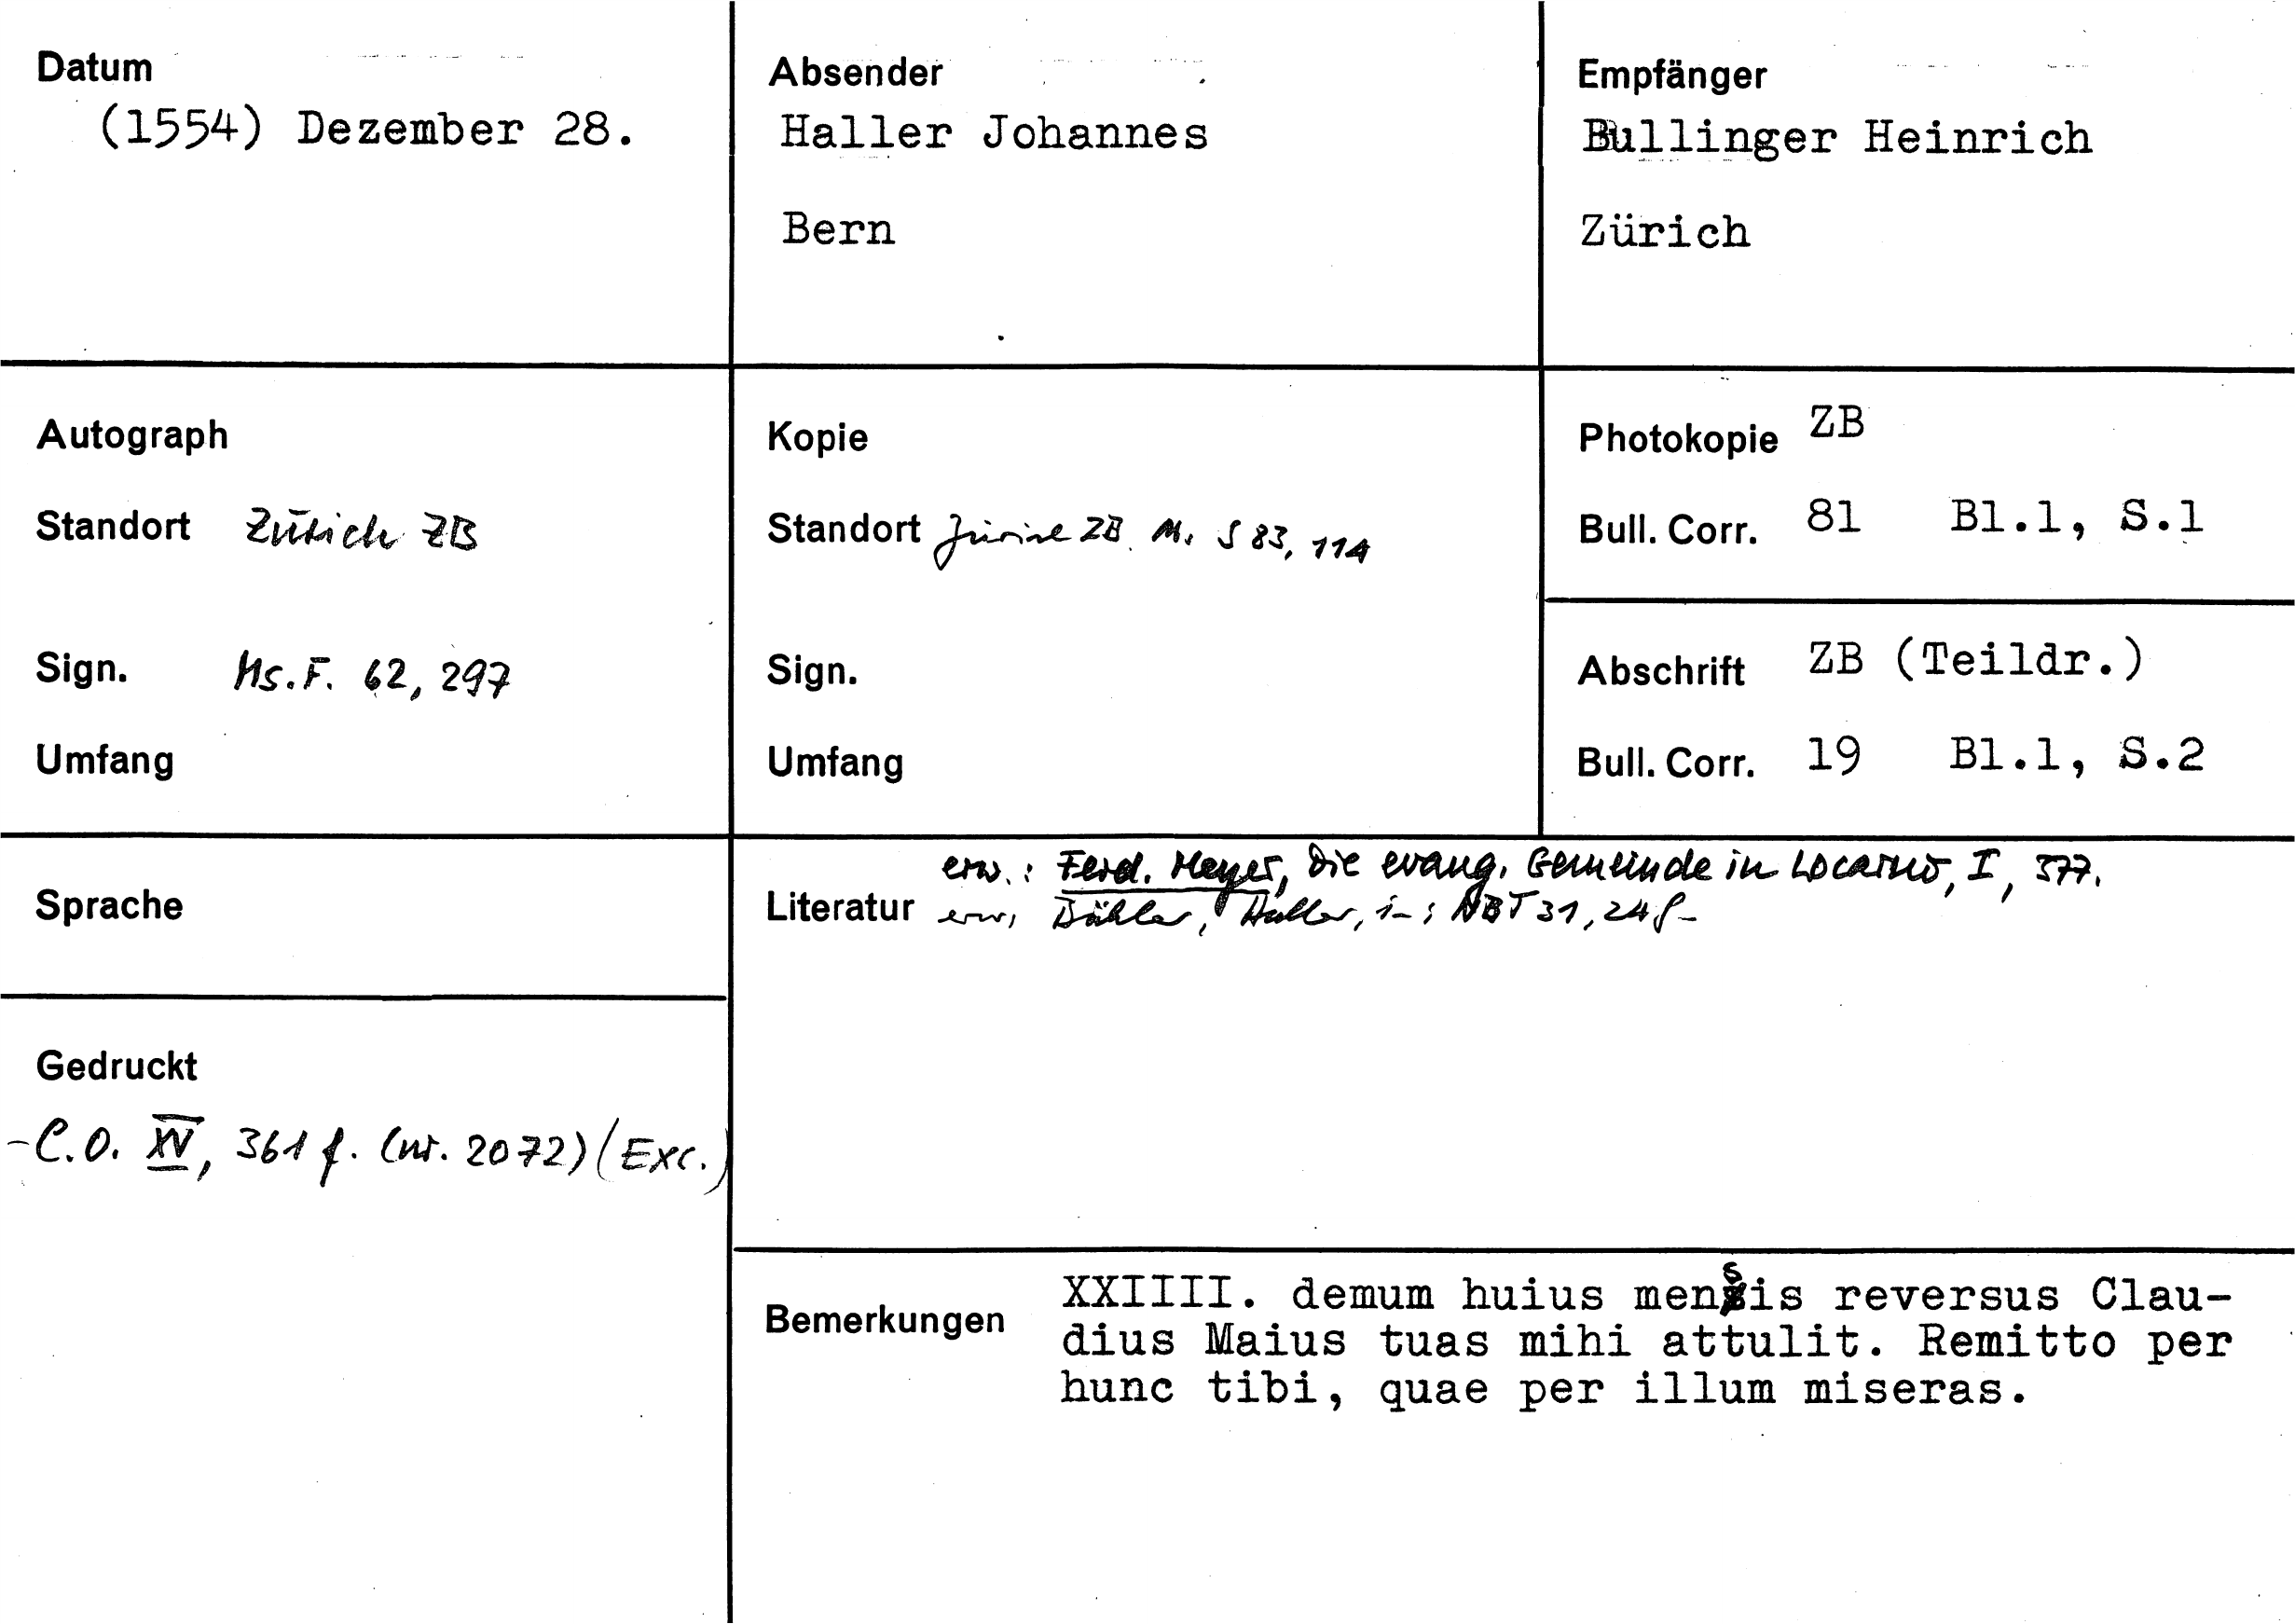 Datum
(1554) Dezember 28.
Absender
Haller Johannes
Bern
Empfänger
Bullinger Heinrich
Zürich
Autograph
Standort Zürich ZB
Sign. Ms. F. 62, 297
Umfang
Kopie
Standort Zürich ZB. Ms S 83, 114
Sign.
Umfang
Photokopie ZB
Bull. Corr. 81 Bl.1, S.1
Abschrift ZB (Teildr.)
Bull. Corr. 19 Bl.1, S.2
Sprache
Gedruckt
- C.O. XV, 361 f. (nr. 2072) (Exc.)
erw.: Ferd. Meyer, Die evang. Gemeinde in Locarno, I, 377.
Literatur erw. Bähler, Haller, in: NBT 31, 24 f.
Bemerkungen
XXIIII. demum huius mensis reversus Clau-
dius Maius tuas mihi attulit. Remitto per
hunc tibi, quae per illum miseras.